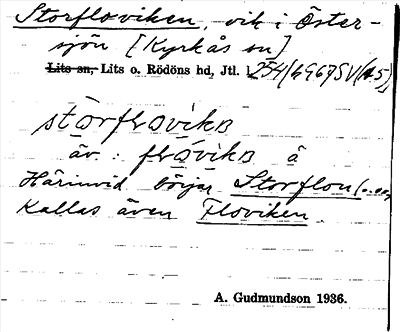 Storfloviken, vik i Öster-
sjön [Kyrkås sn]
Lits sn, Lits o. Rödöns hd, Jtl.
storflovikɒ
äv. flovikɒ å
Härinvid börjar Storflon
Kallas även Floviken.
A. Gudmundson 1936.